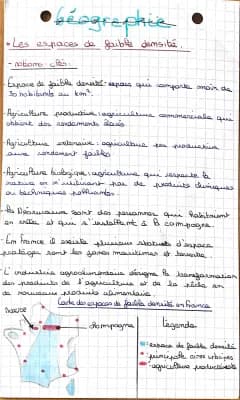 Géographie
• Les espaces de faible densité.
- notions clés.
Espace de faible densité: espace qui comporte moin de
30 habitants au km².
- Agriculture productive: agriculture commerciale qui
obtient des rendements élevés
- Agriculture extensive: agriculture peu productive
avec rendement faibles
- Agriculture biologique: agriculture qui respecte la
nature en n'utilisant pas de produits chimiques
ou techniques polluantes.
- Les Néoruraux sont des personnes qui habitaient
en ville et qui s'installent à la campagne.
- En France il existe plusieurs statuts d'espace
protégés sont les zones maritimes et
- L'industrie agroalimentaire désigne la transformation
des produits de l'agriculture et de la pêche en
de nouveaux produits alimentaire.
Carte des espaces de faible densité en France
Beauce
champagne
Légende
espace de faible densité
principale aires urbaines
agriculture productiviste